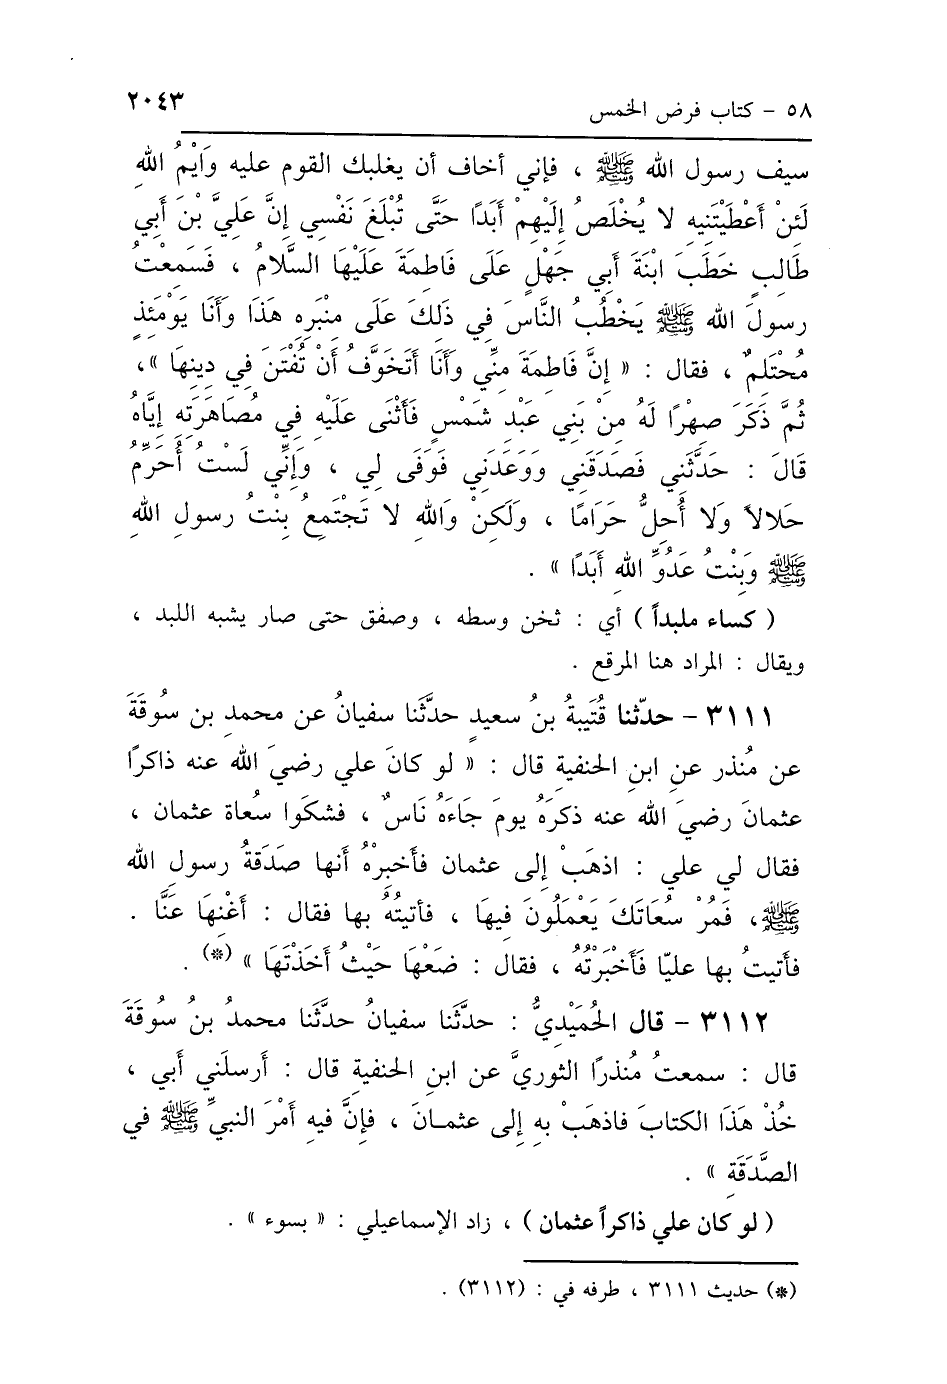 ٥٨ - كتاب فرض الخمس
٢٠٤٣
سيف رسول الله ﷺ ، فإني أخاف أن يغلبك القوم عليه وَايْمُ الله
لَئنْ أَعْطَيْتَنِيه لا يُخْلَصُ إِلَيْهِمْ أَبَدًا حَتَّى تُبْلَغَ نَفْسِي إِنَّ عَلِيَّ بْنَ أَبِي
طَالِبٍ خَطَبَ ابْنَةَ أَبِي جَهْلٍ عَلَى فَاطِمَةَ عَلَيْهَا السَّلَامُ ، فَسَمِعْتُ
رسولَ الله ﷺ يَخْطُبُ النَّاسَ فِي ذَلِكَ عَلَى مِنْبَرِهِ هَذَا وَأَنَا يَوْمَئِذٍ
مُحْتَلِمٌ ، فقال : « إِنَّ فَاطِمَةَ مِنِّي وَأَنَا أَتَخَوَّفُ أَنْ تُفْتَنَ فِي دِينِهَا »،
ثُمَّ ذَكَرَ صِهْرًا لَهُ مِنْ بَنِي عَبْدِ شَمْسٍ فَأَثْنَى عَلَيْهِ فِي مُصَاهَرَتِهِ إِيَّاهُ
قَالَ : حَدَّثَنِي فَصَدَقَنِي وَوَعَدَنِي فَوَفَى لِي ، وَإِنِّي لَسْتُ أُحَرِّمُ
حَلالاً وَلَا أُحِلُّ حَرَامًا ، وَلَكِنْ وَاللهِ لَا تَجْتَمِعُ بِنْتُ رسولِ اللهِ
ﷺ وَبِنْتُ عَدُوِّ اللهِ أَبَدًا » .
( كساء ملبداً ) أي : ثخن وسطه ، وصفق حتى صار يشبه اللبد ،
ويقال : المراد هنا المرقع .
٣١١١ - حدّثنا قُتَيبةُ بنُ سعيدٍ حدّثَنا سفيانُ عن محمدِ بن سُوقَةَ
عن مُنذر عن ابنِ الحنفية قال : « لو كانَ علي رضيَ الله عنه ذاكرًا
عثمانَ رضيَ الله عنه ذكرَهُ يومَ جَاءَهُ نَاسٌ ، فشكَوا سُعاة عثمان ،
فقال لي علي : اذهَبْ إلى عثمان فأخبِرْهُ أنها صَدَقةُ رسول الله
ﷺ، فَمُرْ سُعَاتَكَ يَعْمَلُونَ فِيهَا ، فأتيتُهُ بها فقال : أَغْنِهَا عَنَّا .
فأتيتُ بها عليّا فَأَخْبَرْتُهُ ، فقال : ضَعْهَا حَيْثُ أَخَذْتَهَا » (*) .
٣١١٢ - قال الحُمَيْديُّ : حدَّثَنا سفيانُ حدَّثَنا محمدُ بنُ سُوقَةَ
قال : سمعتُ مُنذرًا الثوريَّ عن ابنِ الحنفية قال : أَرسلَني أبي ،
خُذْ هَذَا الكتابَ فاذهَبْ بِهِ إلى عثمـانَ ، فإنَّ فيهِ أمْرَ النبيِّ ﷺ في
الصَّدَقَةِ » .
( لو كان علي ذاكراً عثمان ) ، زاد الإسماعيلي : « بسوء » .
(*) حديث ٣١١١ ، طرفه في : (٣١١٢) .